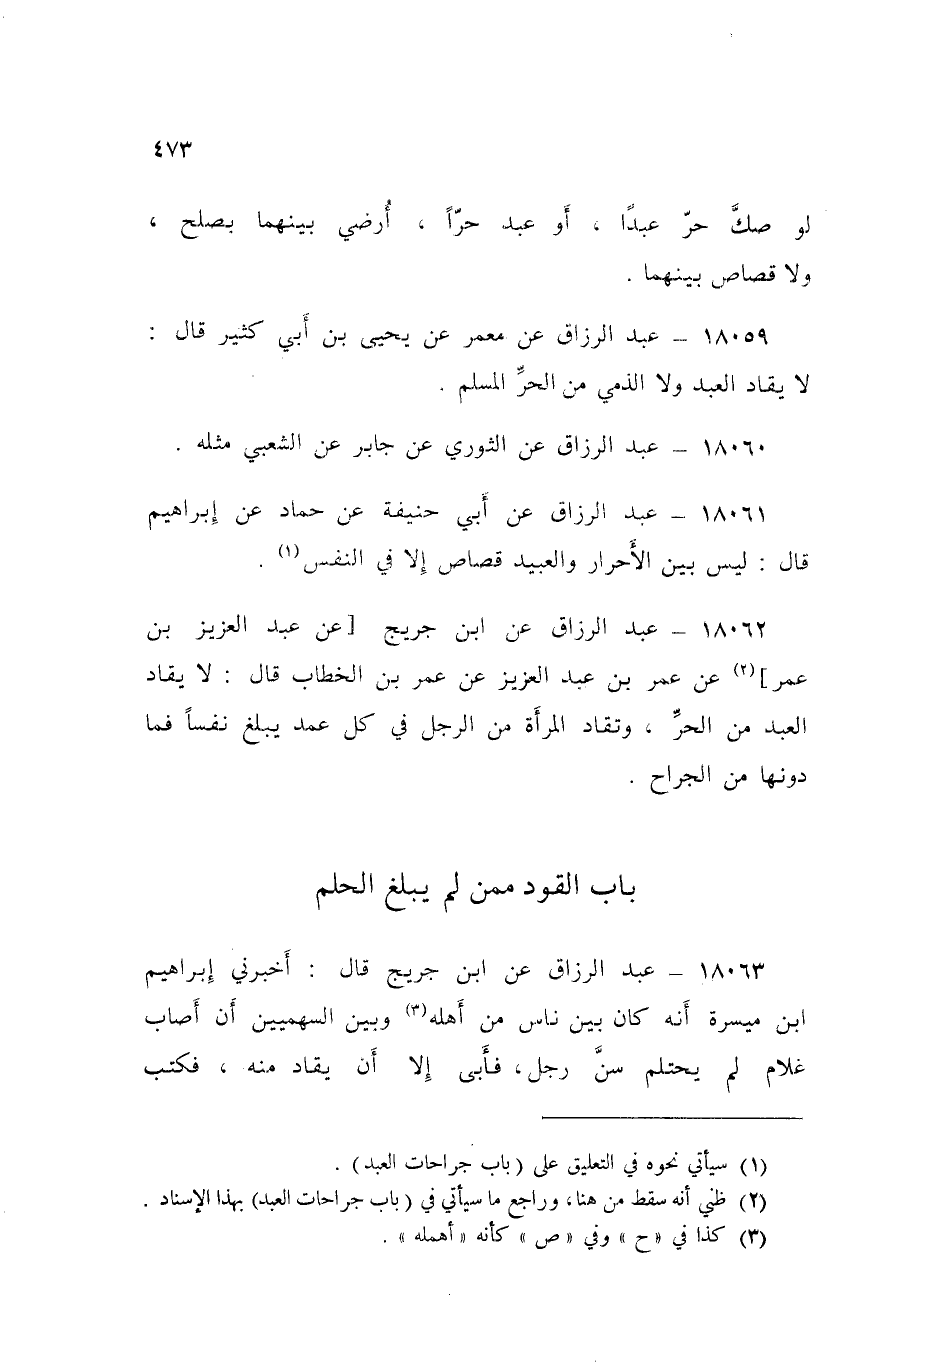 ٤٧٣
لو صكَّ حرّ عبدًا ، أَو عبد حرّاً ، أُرضي بينهما بصلح ،
ولا قصاص بينهما .
١٨٠٥٩ – عبد الرزاق عن معمر عن يحيى بن أَبي كثير قال :
لا يقاد العبد ولا الذمي من الحرِّ المسلم .
١٨٠٦٠ – عبد الرزاق عن الثوري عن جابر عن الشعبي مثله .
١٨٠٦١ – عبد الرزاق عن أَبي حنيفة عن حماد عن إبراهيم
قال : ليس بين الأَحرار والعبيد قصاص إلا في النفس(١) .
١٨٠٦٢ – عبد الرزاق عن ابن جريج [عن عبد العزيز بن
عمر](٢) عن عمر بن عبد العزيز عن عمر بن الخطاب قال : لا يقاد
العبد من الحرِّ ، وتقاد المرأَة من الرجل في كل عمد يبلغ نفساً فما
دونها من الجراح .
باب القود ممن لم يبلغ الحلم
١٨٠٦٣ – عبد الرزاق عن ابن جريج قال : أَخبرني إبراهيم
ابن ميسرة أَنه كان بين ناس من أَهله(٣) وبين السهميين أَن أَصاب
غلام لم يحتلم سنَّ رجل، فأَبى إلا أَن يقاد منه ، فكتب
(١) سيأتي نحوه في التعليق على (باب جراحات العبد) .
(٢) ظني أنه سقط من هنا، وراجع ما سيأتي في (باب جراحات العبد) بهذا الإسناد .
(٣) كذا في «ح» وفي «ص» كأنه «أهمله» .